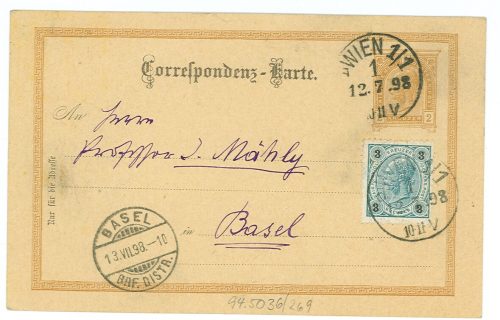 Correspondenz-Karte.
WIEN 1/1
1
12.7.98
10-11V
2
An Herrn
Professor J. Mähly
in Basel
Nur für die Adresse
3 3
3 3
1/1
98
10-11V
BASEL
13.VII.98.-10
BRF. DISTR.
94.5036/269